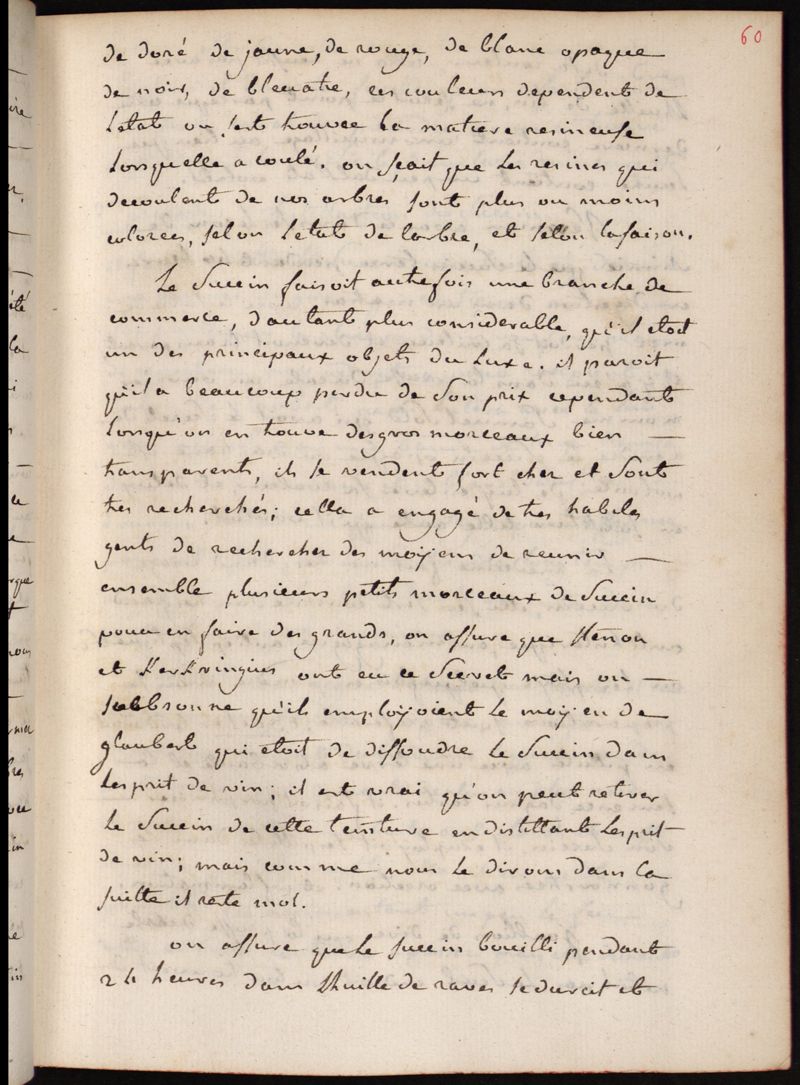 60
de doré de jaune, de rouge, de blanc opaque
de noir, de bleuatre, ces couleurs dependent de
letat ou sest trouvée la matiere resineuse
lorsquelle a coulé. on sçait que les resines qui
decoulent de nos arbres sont plus ou moins
colorées, selon letat de larbre, et selon la saison.
Le Succin faisoit autrefois une branche de
commerce, dautant plus considerable, qu'il etoit
un des principaux objets du Luxe. il paroit
qu'il a beaucoup perdu de Son prix cependant
lorsqu'on en trouve des gros morceaux bien —
transparents, ils se vendent fort cher et Sont
tres recherchés; cella a engagé de tres habiles
gents de rechercher des moyens de reunir —
ensemble plusieurs petits morceaux de Succin
pour en faire des grands, on assure que Stenon
et Kerkringius ont eu ce Secret mais on —
qu'ils employoient le moyen de
glaubert qui etoit de dissoudre le Succin dans
lesprit de vin; il est vrai qu'on peut retirer
le Succin de cette teinture en distillant lesprit
de vin; mais comme nous le dirons dans la
suitte il reste mol.
on assure que le succin bouilli pendant
24 heures dans lhuille de raves se durcit et